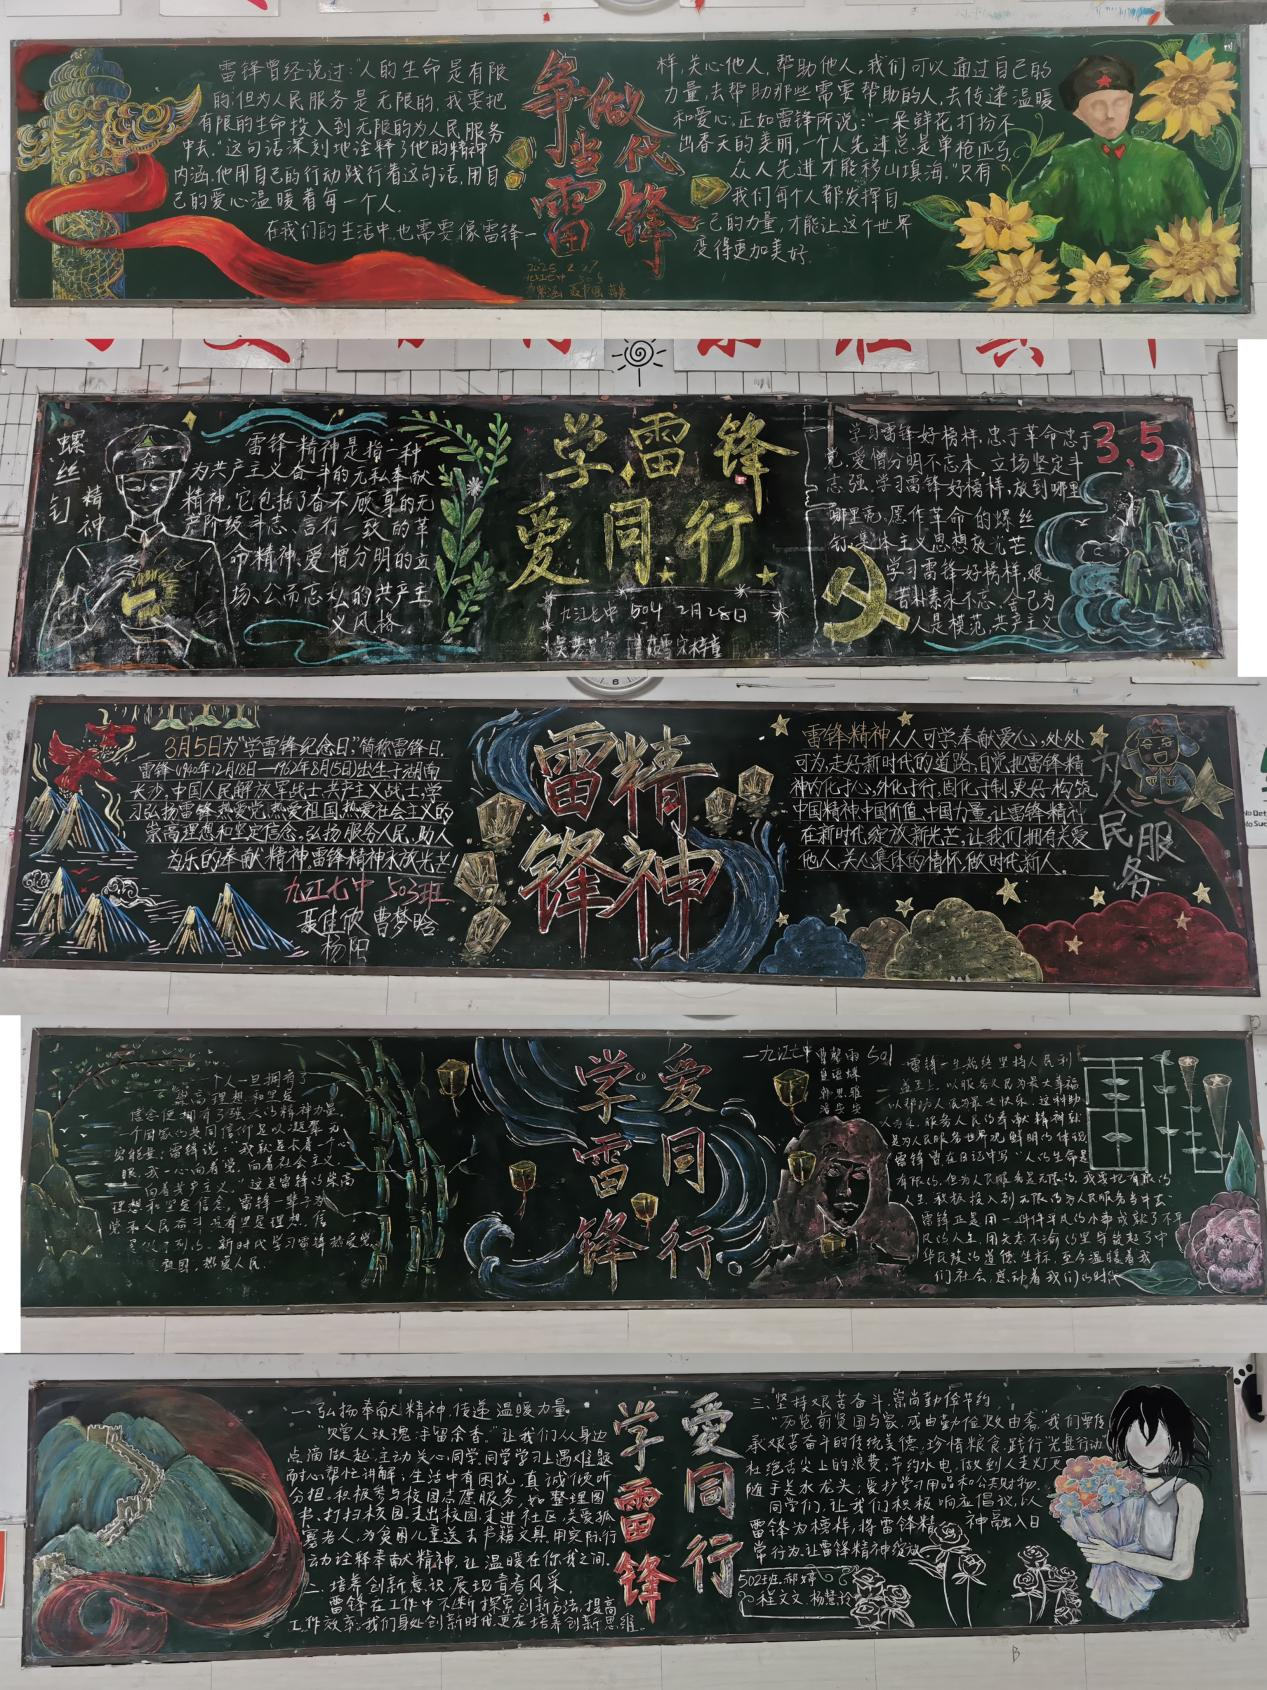 雷锋曾经说过:“人的生命是有限
的,但为人民服务是无限的,我要把
有限的生命投入到无限的为人民服务
中去。”这句话深刻地诠释了他的精神
内涵,他用自己的行动践行着这句话,用自
己的爱心温暖着每一个人.
在我们的生活中,也需要像雷锋一
争做
当代
雷锋
2025 2 27
样,关心他人,帮助他人,我们可以通过自己的
力量,去帮助那些需要帮助的人,去传递温暖
和爱心。正如雷锋所说:“一朵鲜花打扮不
出春天的美丽,一个人先进总是单枪匹马,
众人先进才能移山填海。”只有
我们每个人都发挥自
己的力量,才能让这个世界
变得更加美好.
螺丝钉
精神
雷锋精神是指一种
为共产主义奋斗的无私奉献
精神,它包括了奋不顾身的无
产阶级斗志、言行一致的革
命精神、爱憎分明的立
场、公而忘私的共产主
义风格
学雷锋
爱同行
九江七中 504 2月28日
学习雷锋好榜样,忠于革命忠于
党,爱憎分明不忘本,立场坚定斗
志强,学习雷锋好榜样,放到哪里
哪里亮,愿作革命的螺丝
钉,集体主义思想放光芒,
学习雷锋好榜样,艰
苦朴素永不忘,舍己为
人是模范,共产主义
3.5
3月5日为“学雷锋纪念日,”简称雷锋日.
雷锋(1940年12月18日—1962年8月15日)出生于湖南
长沙,中国人民解放军战士,共产主义战士,学
习弘扬雷锋热爱党,热爱祖国,热爱社会主义的
崇高理想和坚定信念,弘扬服务人民、助人
为乐的奉献精神,雷锋精神永放光芒!
九江七中 503班
聂佳欣 曹梦晗
杨阳
雷锋
精神
雷锋精神人人可学,奉献爱心,处处
可为,走好新时代的道路,自觉把雷锋精
神内化于心,外化于行,固化于制,更好构筑
中国精神、中国价值、中国力量,让雷锋精神
在新时代绽放新光芒,让我们拥有关爱
他人、关心集体的情怀,做时代新人。
为人民服务
一个人一旦拥有了
崇高理想和坚定
信念便拥有了强大的精神力量,
一个国家的共同信仰足以凝聚无
穷能量;雷锋说:“我就是长着一个心
眼,我一心向着党,向着社会主义,
向着共产主义。”这是雷锋的崇高
理想和坚定信念,雷锋一辈子为
祖国,热爱人民.
学雷锋
爱同行
九江七中
501
雷锋一生始终坚持人民利
益至上,以服务人民为最大幸福
以帮助人民为最大快乐,这种助
人为乐、服务人民的奉献精神就
是为人民服务世界观鲜明的体现
雷锋曾在日记中写“人的生命是
有限的,但为人民服务是无限的,我要把有限的
人生,积极投入到无限的为人民服务当中去”
雷锋正是用一件件平凡的小事成就了不平
凡的人生,用矢志不渝的坚守筑起了中
华民族的道德坐标,至今温暖着我
们社会,感动着我们的时代
一、弘扬奉献精神,传递温暖力量
“赠人玫瑰,手留余香。”让我们从身边
点滴做起,主动关心同学,同学学习上遇难题
耐心帮忙讲解;生活中有困扰,真诚倾听
分担.积极参与校园志愿服务,如整理图
书、打扫校园.走出校园,走进社区,关爱孤
寡老人,为贫困儿童送去书籍文具,用实际行
动诠释奉献精神,让温暖在你我之间.
二、培养创新意识,展现青春风采.
雷锋在工作中不断探索创新方法,提高
工作效率.我们身处创新时代,更应培养创新思维.
学雷锋
爱同行
三、坚持艰苦奋斗,崇尚勤俭节约
“历览前贤国与家,成由勤俭败由奢”我们要传
承艰苦奋斗的传统美德.珍惜粮食,践行“光盘行动”
杜绝舌尖上的浪费;节约水电,做到人走灯灭
随手关水龙头;爱护学习用品和公共财物.
同学们,让我们积极响应倡议,以
雷锋为榜样,将雷锋精神融入日
常行为,让雷锋精神绽放
502班:郝婷
程文文 杨慧玲